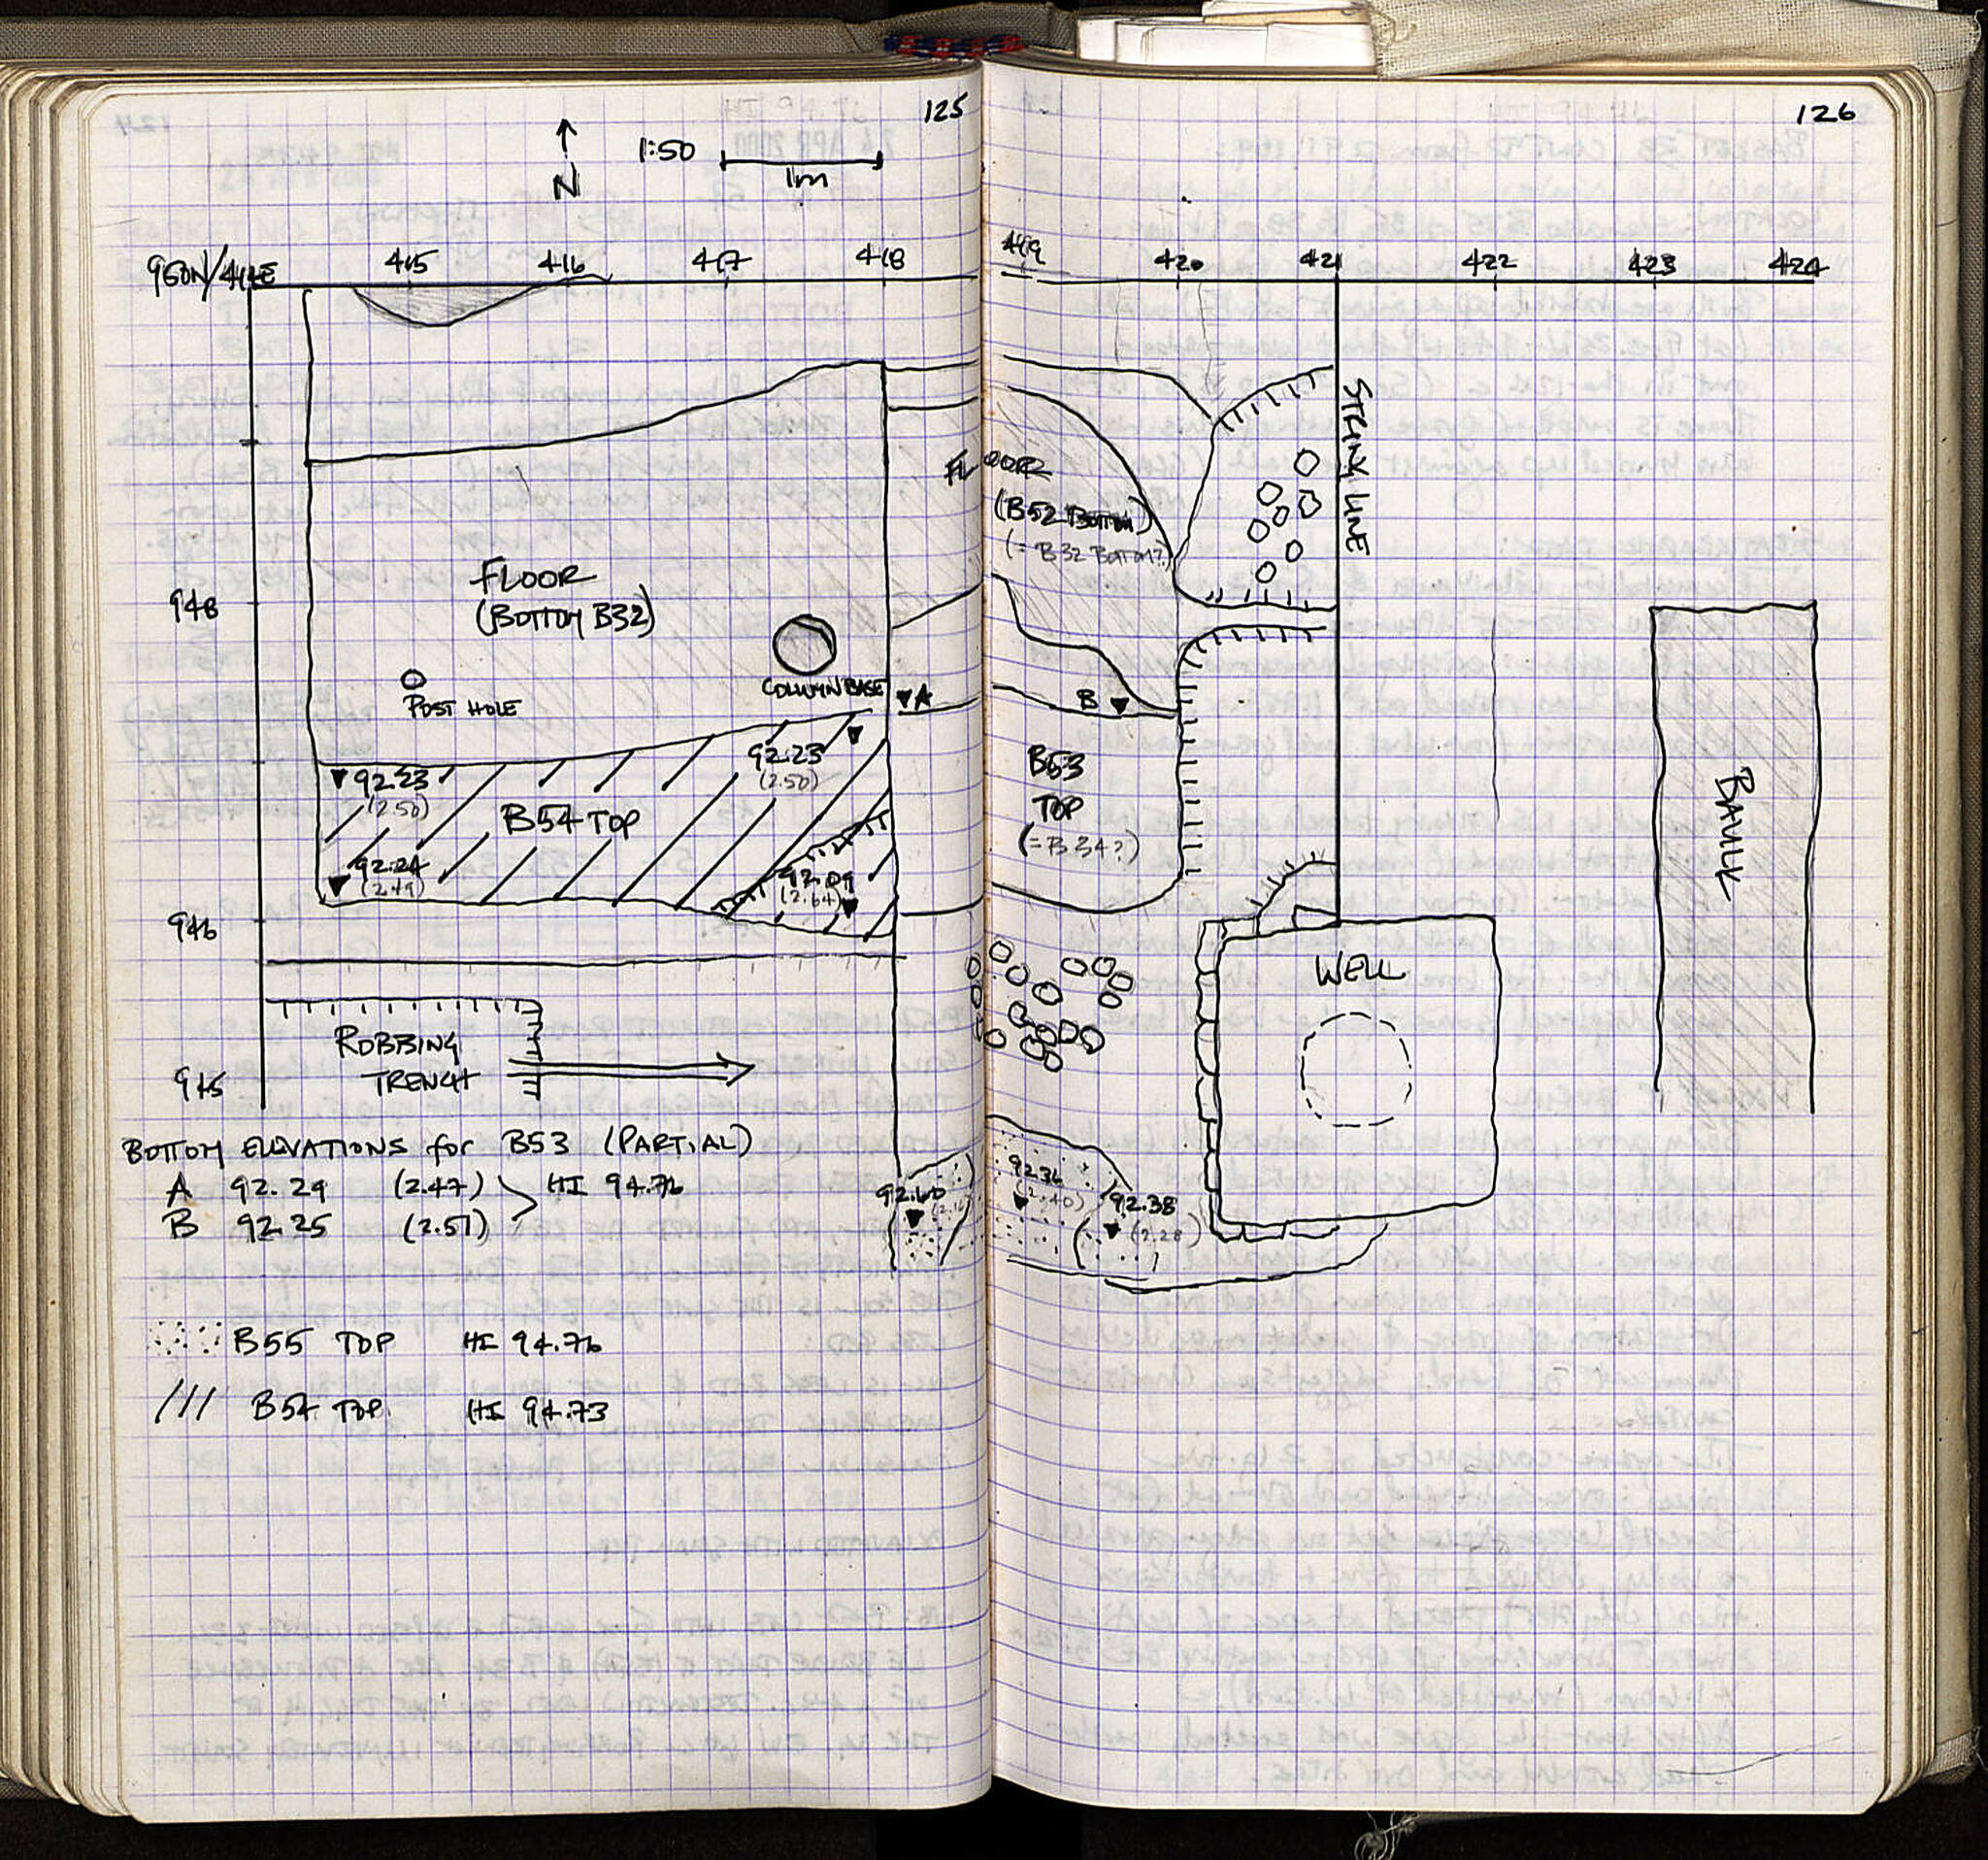 125
126
N
1:50
1m
950N/414E 415 416 417 418 419 420 421 422 423 424
STRING LINE
FLOOR
(B52 BOTTOM)
(= B32 BOTTOM?)
FLOOR
(BOTTOM B32)
948
COLUMN BASE
POST HOLE
A
B
92.23
(2.50)
92.23
(2.50)
B53
TOP
(= B34?)
B54 TOP
BAULK
92.24
(2.49)
92.09
(2.64)
946
WELL
ROBBING
TRENCH
945
BOTTOM ELEVATIONS for B53 (PARTIAL)
A 92.29 (2.47) HI 94.76
B 92.25 (2.51)
92.60
92.36
(2.40)
92.38
(2.28)
B55 TOP HI 94.76
/// B54 TOP HI 94.73